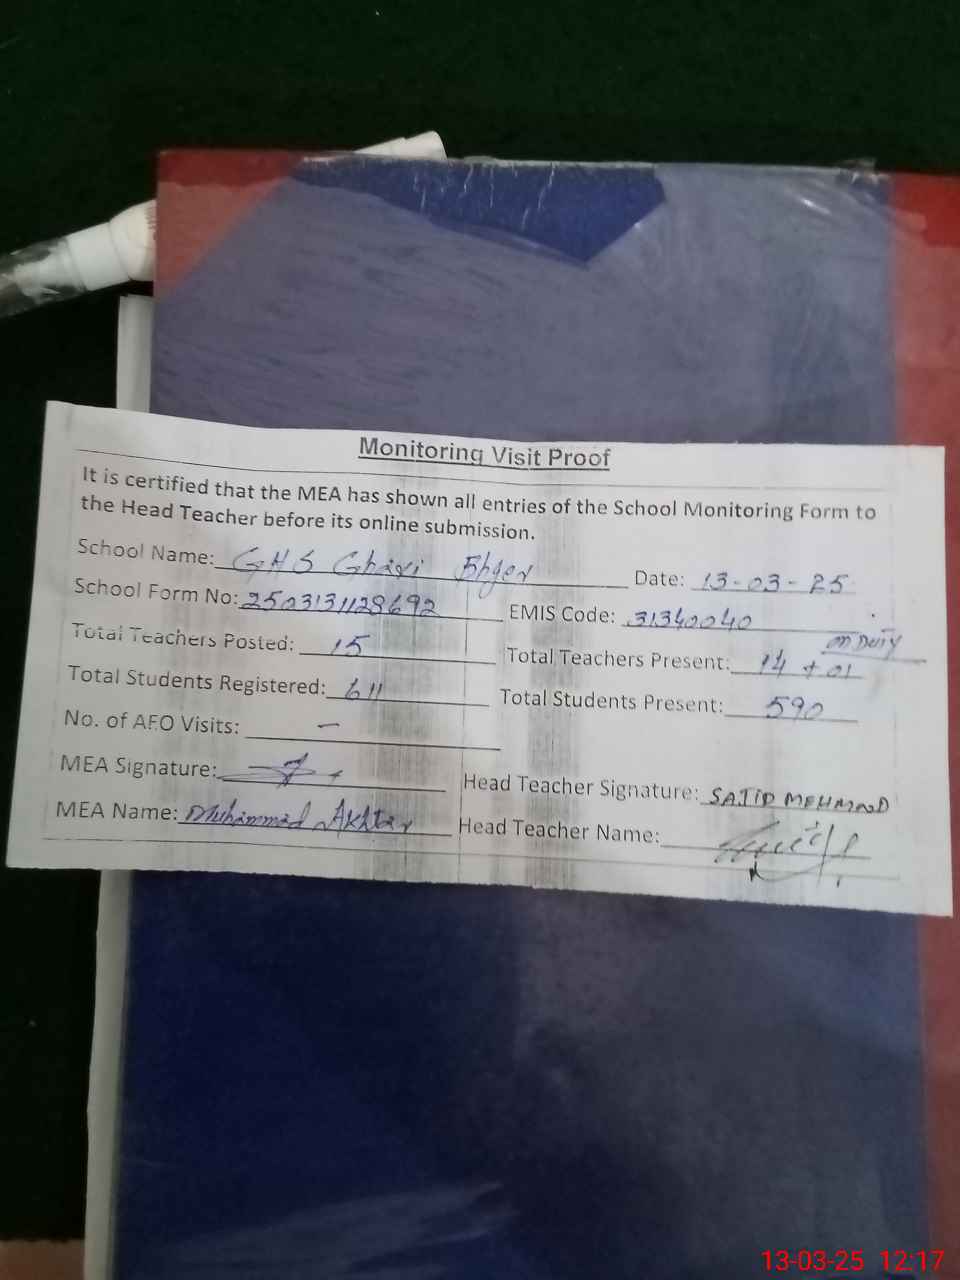 Monitoring Visit Proof
It is certified that the MEA has shown all entries of the School Monitoring Form to
the Head Teacher before its online submission.
School Name: GHS Ghari Date: 13-03-25
School Form No: 2503131128692 EMIS Code: 31340040
on Duty
Total Teachers Posted: 15 Total Teachers Present: 14 + 01
Total Students Registered: 611 Total Students Present: 590
No. of AEO Visits: -
MEA Signature: Head Teacher Signature: SAJID MEHMOOD
MEA Name: Muhammad Akhtar Head Teacher Name:
13-03-25 12:17